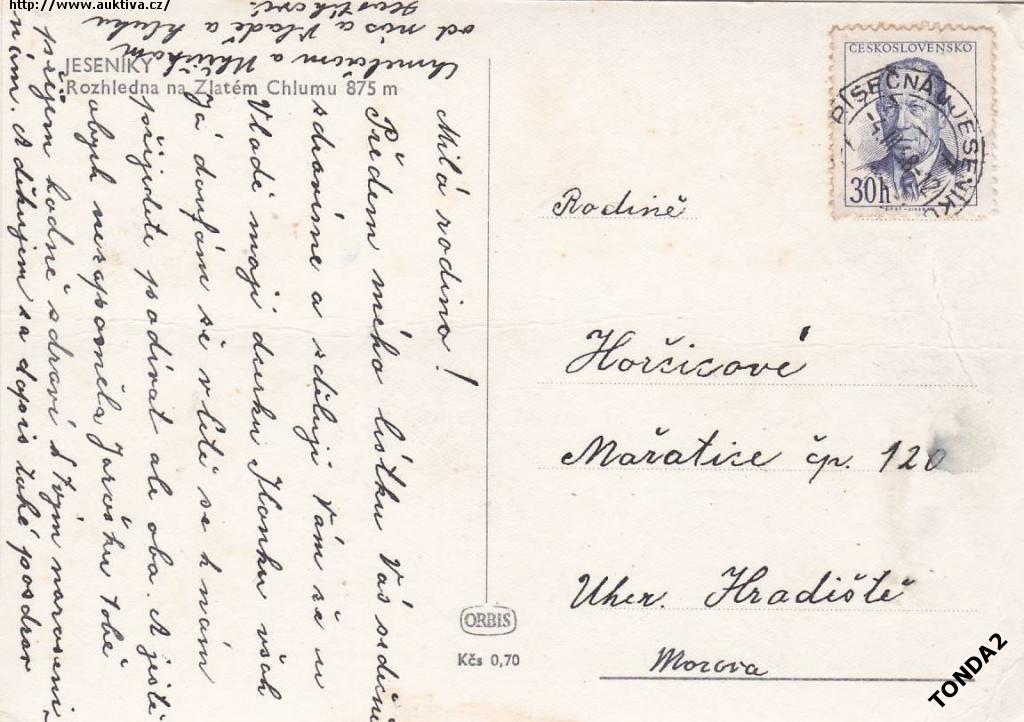 http://www.auktiva.cz/
JESENÍKY
Rozhledna na Zlatém Chlumu 875 m
Milá rodino!
Předem mého lístku Vás srdečně
zdravíme a sděluji Vám že u
Vladi mojí dceru Ilonku všech
Já doufám že v létě se k nám
přijedete podívat ale oba. A ještě
abych nezapomněla Jarošku tobě
přejem hodně zdraví k Tvým narozeni-
nám. A děkujem za dopis také pozdrav
a
od nás a Vladě a kluku
ČESKOSLOVENSKO
30h
PÍSEČNÁ U JESENÍKU
Rodině
Horčicové
Mařatice čp. 120
Uher. Hradiště
Morava
ORBIS
Kčs 0,70
TONDA2